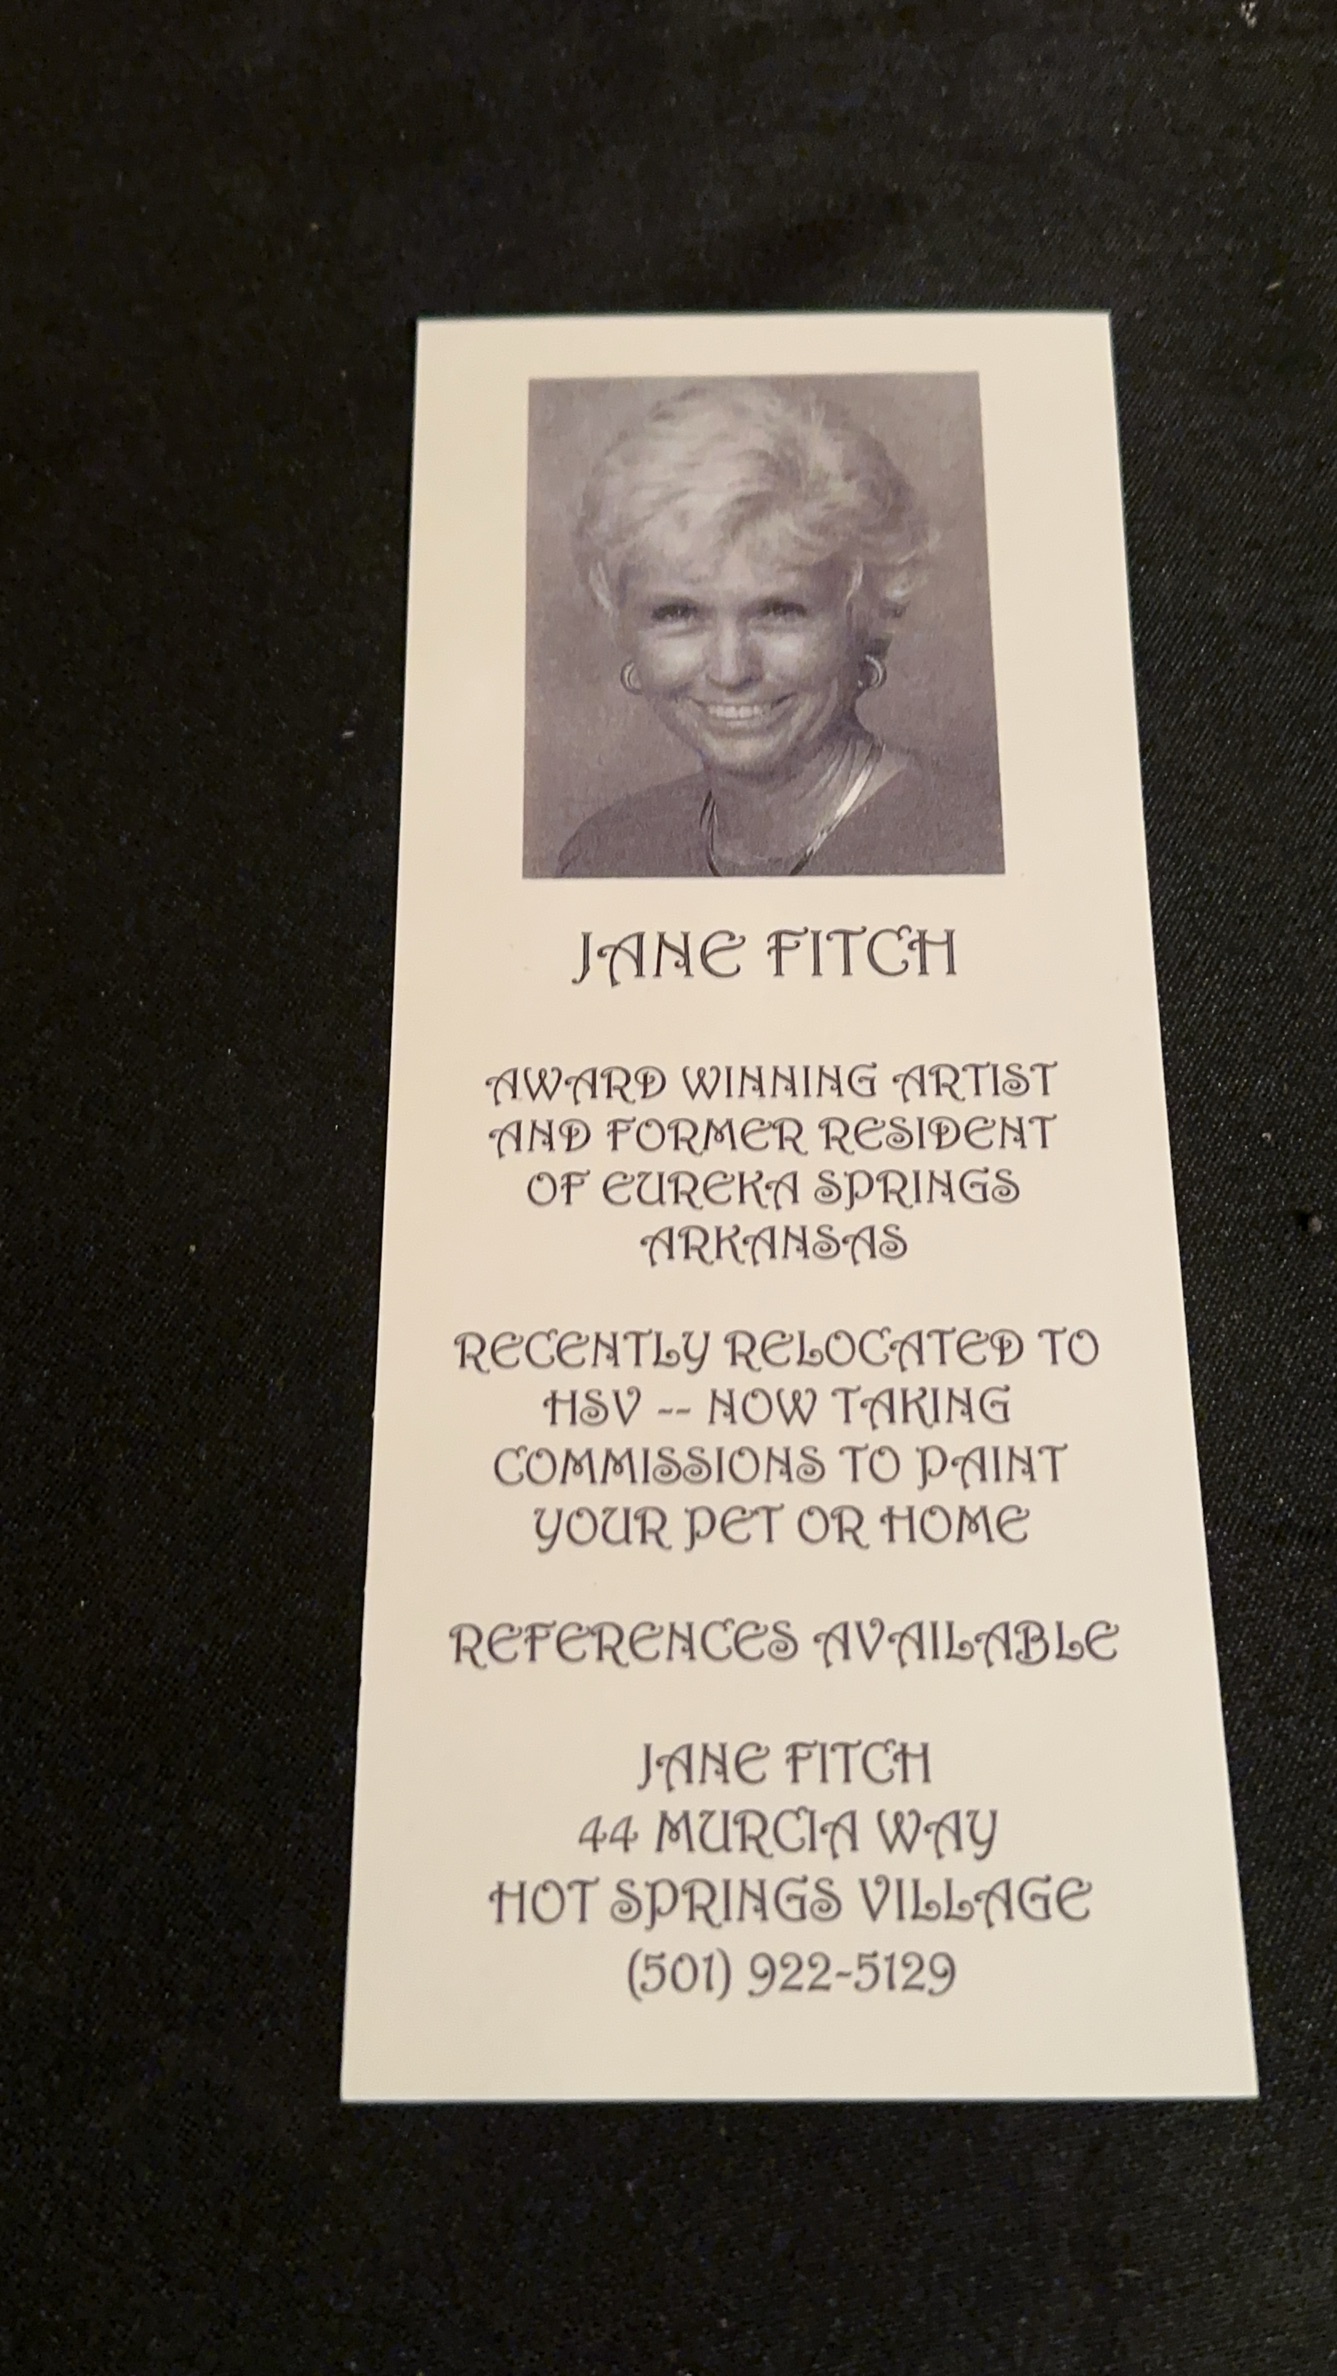 JANE FITCH
AWARD WINNING ARTIST
AND FORMER RESIDENT
OF EUREKA SPRINGS
ARKANSAS
RECENTLY RELOCATED TO
HSV -- NOW TAKING
COMMISSIONS TO PAINT
YOUR PET OR HOME
REFERENCES AVAILABLE
JANE FITCH
44 MURCIA WAY
HOT SPRINGS VILLAGE
(501) 922-5129